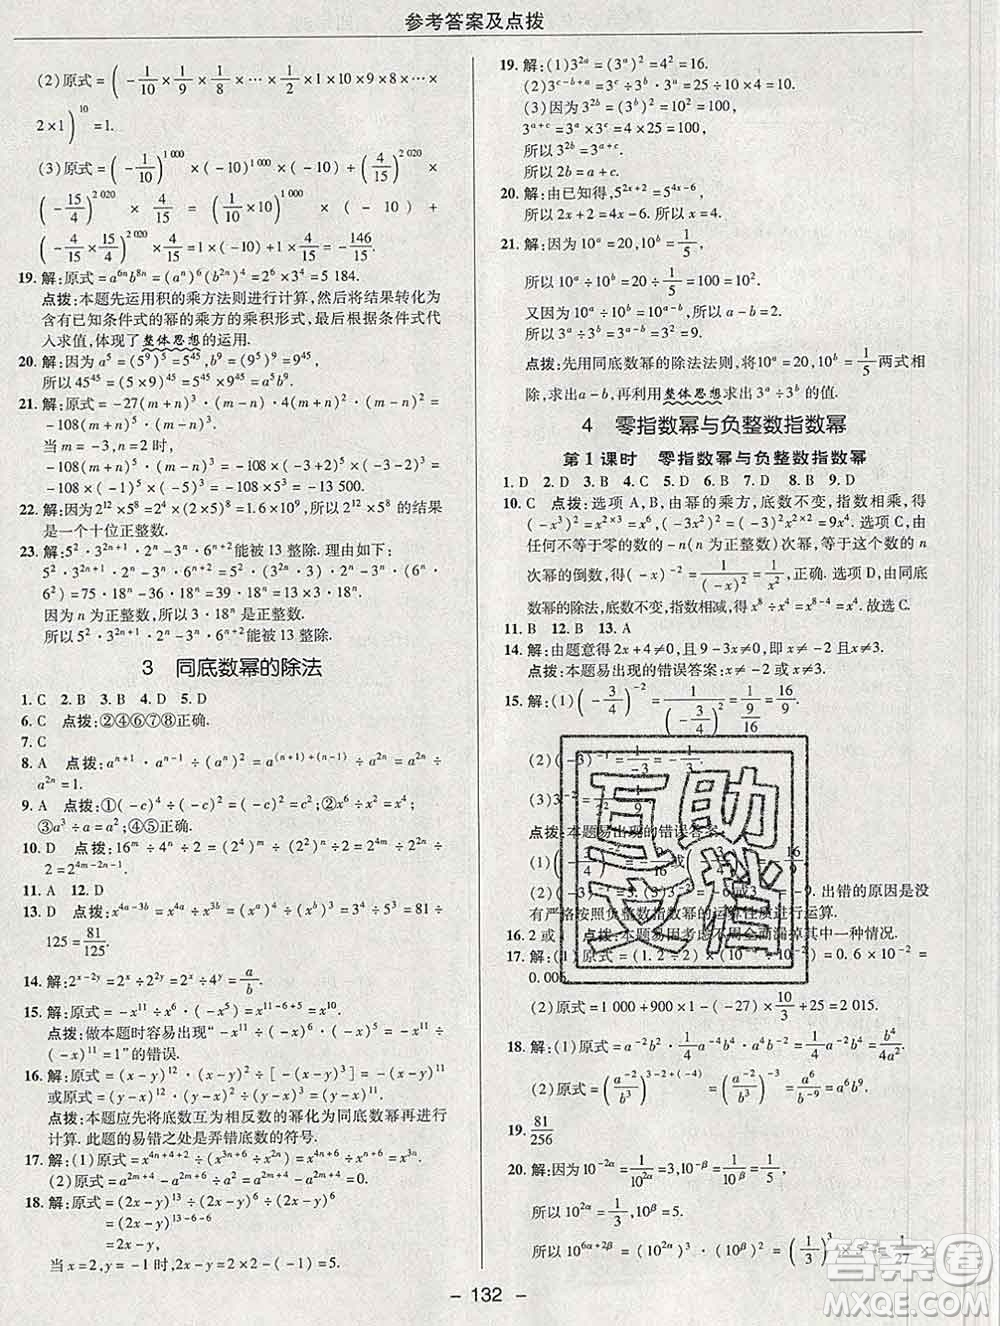 参考答案及点拨
(2)原式=(-1/10×1/9×1/8×…×1/2×1)^10×(10×9×8×…×
2×1)^10=1.
(3)原式=(-1/10)^1 000×(-10)^1 000×(-10)+(4/15)^2 020×
(-15/4)^2 020×4/15=(1/10×10)^1 000×(-10)+
(4/15×15/4)^2 020×4/15=1×(-10)+1×4/15=-146/15.
19. 解:原式=a^6n b^8n=(a^n)^6(b^2n)^4=2^6×3^4=5 184.
点拨:本题先运用积的乘方法则进行计算,然后将结果转化为
含有已知条件式的幂的乘方的乘积形式,最后根据条件式代
入求值,体现了整体思想的运用.
20. 解:因为a^5=(5^9)^5=5^45,b^9=(9^5)^9=9^45,
所以45^45=(5×9)^45=5^45×9^45=a^5b^9.
21. 解:原式=-27(m+n)^3·(m-n)·4(m+n)^2·(m-n)^2=
-108(m+n)^5·(m-n)^3.
当m=-3,n=2时,
-108(m+n)^5·(m-n)^3=-108×(-3+2)^5×(-3-2)^3=
-108×(-1)^5×(-5)^3=-13 500.
22. 解:因为2^12×5^8=2^4×(2×5)^8=1.6×10^9,所以2^12×5^8的结果
是一个十位正整数.
23. 解:5^2·3^2n+1·2^n-3^n·6^n+2能被13整除. 理由如下:
5^2·3^2n+1·2^n-3^n·6^n+2=5^2·(3^2n·3)·2^n-3^n·(6^n·
6^2)=75·18^n-36·18^n=39·18^n=13×3·18^n.
因为n为正整数,所以3·18^n是正整数.
所以5^2·3^2n+1·2^n-3^n·6^n+2能被13整除.
3 同底数幂的除法
1. C 2. B 3. B 4. D 5. D
6. C 点拨:②④⑥⑦⑧正确.
7. C
8. A 点拨:a^n+1·a^n-1÷(a^n)^2=a^(n+1)+(n-1)÷a^2n=a^2n÷
a^2n=1.
9. A 点拨:①(-c)^4÷(-c)^2=(-c)^2=c^2;
③a^3÷a=a^2;④⑤正确.
10. D 点拨:16^m÷4^n÷2=(2^4)^m÷(2^2)^n÷2=2^4m÷2^2n÷
2=2^4m-2n-1.
11. A 12. D
13. D 点拨:x^4a-3b=x^4a÷x^3b=(x^a)^4÷(x^b)^3=3^4÷5^3=81÷
125=81/125.
14. 解:2^x-2y=2^x÷2^2y=2^x÷4^y=a/b.
15. 解:原式=-x^11÷x^6·(-x^5)=x^11-6+5=x^10.
点拨:做本题时容易出现“-x^11÷(-x)^6·(-x)^5=-x^11÷
(-x)^11=1”的错误.
16. 解:原式=(x-y)^12·(x-y)^2÷[-(x-y)^3]=-(x-y)^11,
或原式=(y-x)^12·(y-x)^2÷(y-x)^3=(y-x)^11.
点拨:本题应先将底数互为相反数的幂化为同底数幂再进行
计算. 此题的易错之处是弄错底数的符号.
17. 解:(1)原式=x^4n+4+2÷(x^3n+6÷x^6-n)=x^4n÷x^n=x^3n.
(2)原式=a^2m+4-a^2m+4÷a^0=a^2m+4-a^2m+4=0.
18. 解:原式=(2x-y)^13÷(2x-y)^6÷(2x-y)^6
=(2x-y)^13-6-6
=2x-y.
当x=2,y=-1时,2x-y=2×2-(-1)=5.
19. 解:(1)3^2a=(3^a)^2=4^2=16.
(2)3^c-b+a=3^c÷3^b·3^a=25÷10×4=10.
(3)因为3^2b=(3^b)^2=10^2=100,
3^a+c=3^a×3^c=4×25=100,
所以3^2b=3^a+c.
所以2b=a+c.
20. 解:由已知得,5^2x+2=5^4x-6,
所以2x+2=4x-6. 所以x=4.
21. 解:因为10^a=20,10^b=1/5,
所以10^a÷10^b=10^a-b=20÷1/5=100=10^2.
又因为10^a÷10^b=10^a-b,所以a-b=2.
所以3^a÷3^b=3^a-b=3^2=9.
点拨:先用同底数幂的除法法则,将10^a=20,10^b=1/5两式相
除,求出a-b,再利用整体思想求出3^a÷3^b的值.
4 零指数幂与负整数指数幂
第1课时 零指数幂与负整数指数幂
1. D 2. D 3. B 4. B 5. B 6. D 7. D 8. D 9. D
10. C 点拨:选项A,B,由幂的乘方,底数不变,指数相乘,得
(-x^3)^2=x^2×3=x^6,(-3x^2)^2=9x^2×2=9x^4. 选项C,由
任何不等于零的数的-n(n为正整数)次幂,等于这个数的n
次幂的倒数,得(-x)^-2=1/(-x)^2=1/x^2. 选项D,由同底
数幂的除法,底数不变,指数相减,得x^8÷x^4=x^8-4=x^4.故选C.
11. B 12. B 13. A
14. 解:由题意得2x+4≠0,且9-3x≠0,即x≠-2且x≠3.
点拨:本题易出现的错误答案:x≠-2或x≠3.
15. 解:(1)(-3/4)^-2=1/(-3/4)^2=1/(9/16)=16/9.
(2)(-3)^-1=1/-3=-1/3.
(3)3^-2=
点拨:本题易出现的错误答案:
. 出错的原因是没
有严格按照负整数指数幂的运算性质进行运算.
16. 2或 点拨:本题易因考虑不周全而漏掉其中一种情况.
17. 解:(1)原式=(1.2÷2)×10^
0.006.
(2)原式=1 000+900×1-(-27)×10/3+25=2 015.
18. 解:(1)原式=a^-2b^2·1/4a^-4b^4=1/4a^-6b^6=b^6/4a^6.
(2)原式=(a^-2/b^3)^-3+2+(-4)=(a^-2/b^3)^
19. 81/256
20. 解:因为10^-2α=1/10^2α=3,10^-β=1/10^β=1/5,
所以10^2α=1/3,10^β=5.
所以10^6α+2β=(10^2α)^3·(10^β)^2=(1/3)^3×5^2=1/27×
- 132 -
互助文档
答案圈
MXQE.COM